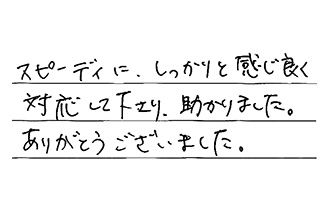 スピーディに、しっかりと感じ良く
対応して下さり、助かりました。
ありがとうございました。